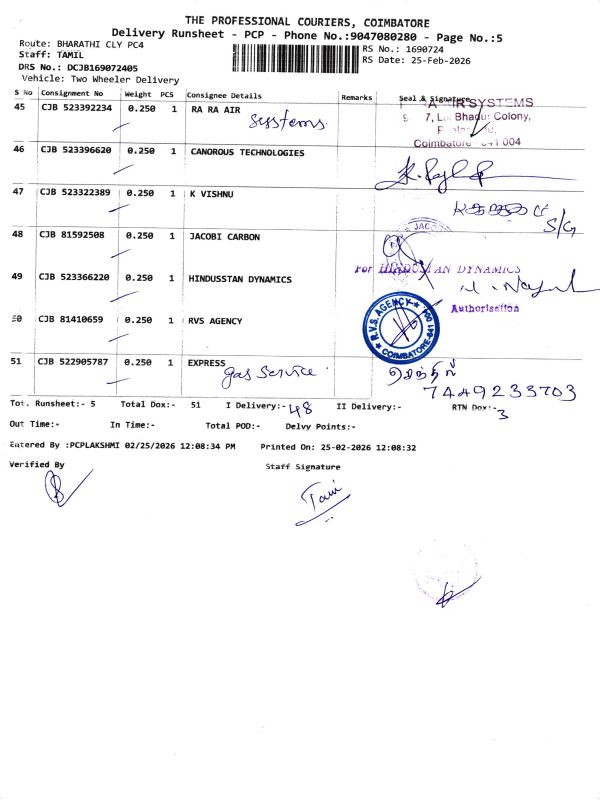 THE PROFESSIONAL COURIERS, COIMBATORE
Delivery Runsheet - PCP - Phone No.:9047080280 - Page No.:5
Route: BHARATHI CLY PC4
Staff: TAMIL
DRS No.: DCJB169072405
Vehicle: Two Wheeler Delivery
RS No.: 1690724
RS Date: 25-Feb-2026
S No Consignment No Weight PCS Consignee Details Remarks Seal & Signature
45 CJB 523392234 0.250 1 RA RA AIR
systems
SYSTEMS
7, Bhadur Colony,
Coimbatore 641 004
46 CJB 523396620 0.250 1 CANOROUS TECHNOLOGIES
47 CJB 523322389 0.250 1 K VISHNU
S/G
48 CJB 81592508 0.250 1 JACOBI CARBON
JACO
49 CJB 523366220 0.250 1 HINDUSSTAN DYNAMICS
For HINDOSTAN DYNAMICS
Authorisation
50 CJB 81410659 0.250 1 RVS AGENCY
R.V.S. AGENCY
COIMBATORE-641 004
51 CJB 522905787 0.250 1 EXPRESS
gas service
7449233703
Tot. Runsheet:- 5 Total Dox:- 51 I Delivery:- 48 II Delivery:- RTN Dox:- 3
Out Time:- In Time:- Total POD:- Delvy Points:-
Entered By :PCPLAKSHMI 02/25/2026 12:08:34 PM Printed On: 25-02-2026 12:08:32
Verified By Staff Signature
Tami